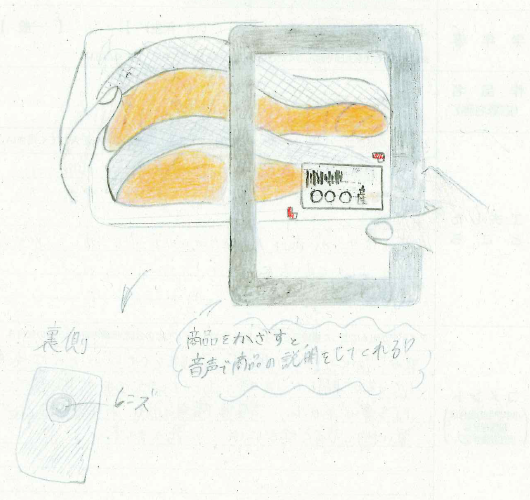 ○○○
商品をかざすと
音声で商品の説明をしてくれる!?
裏側
レンズ